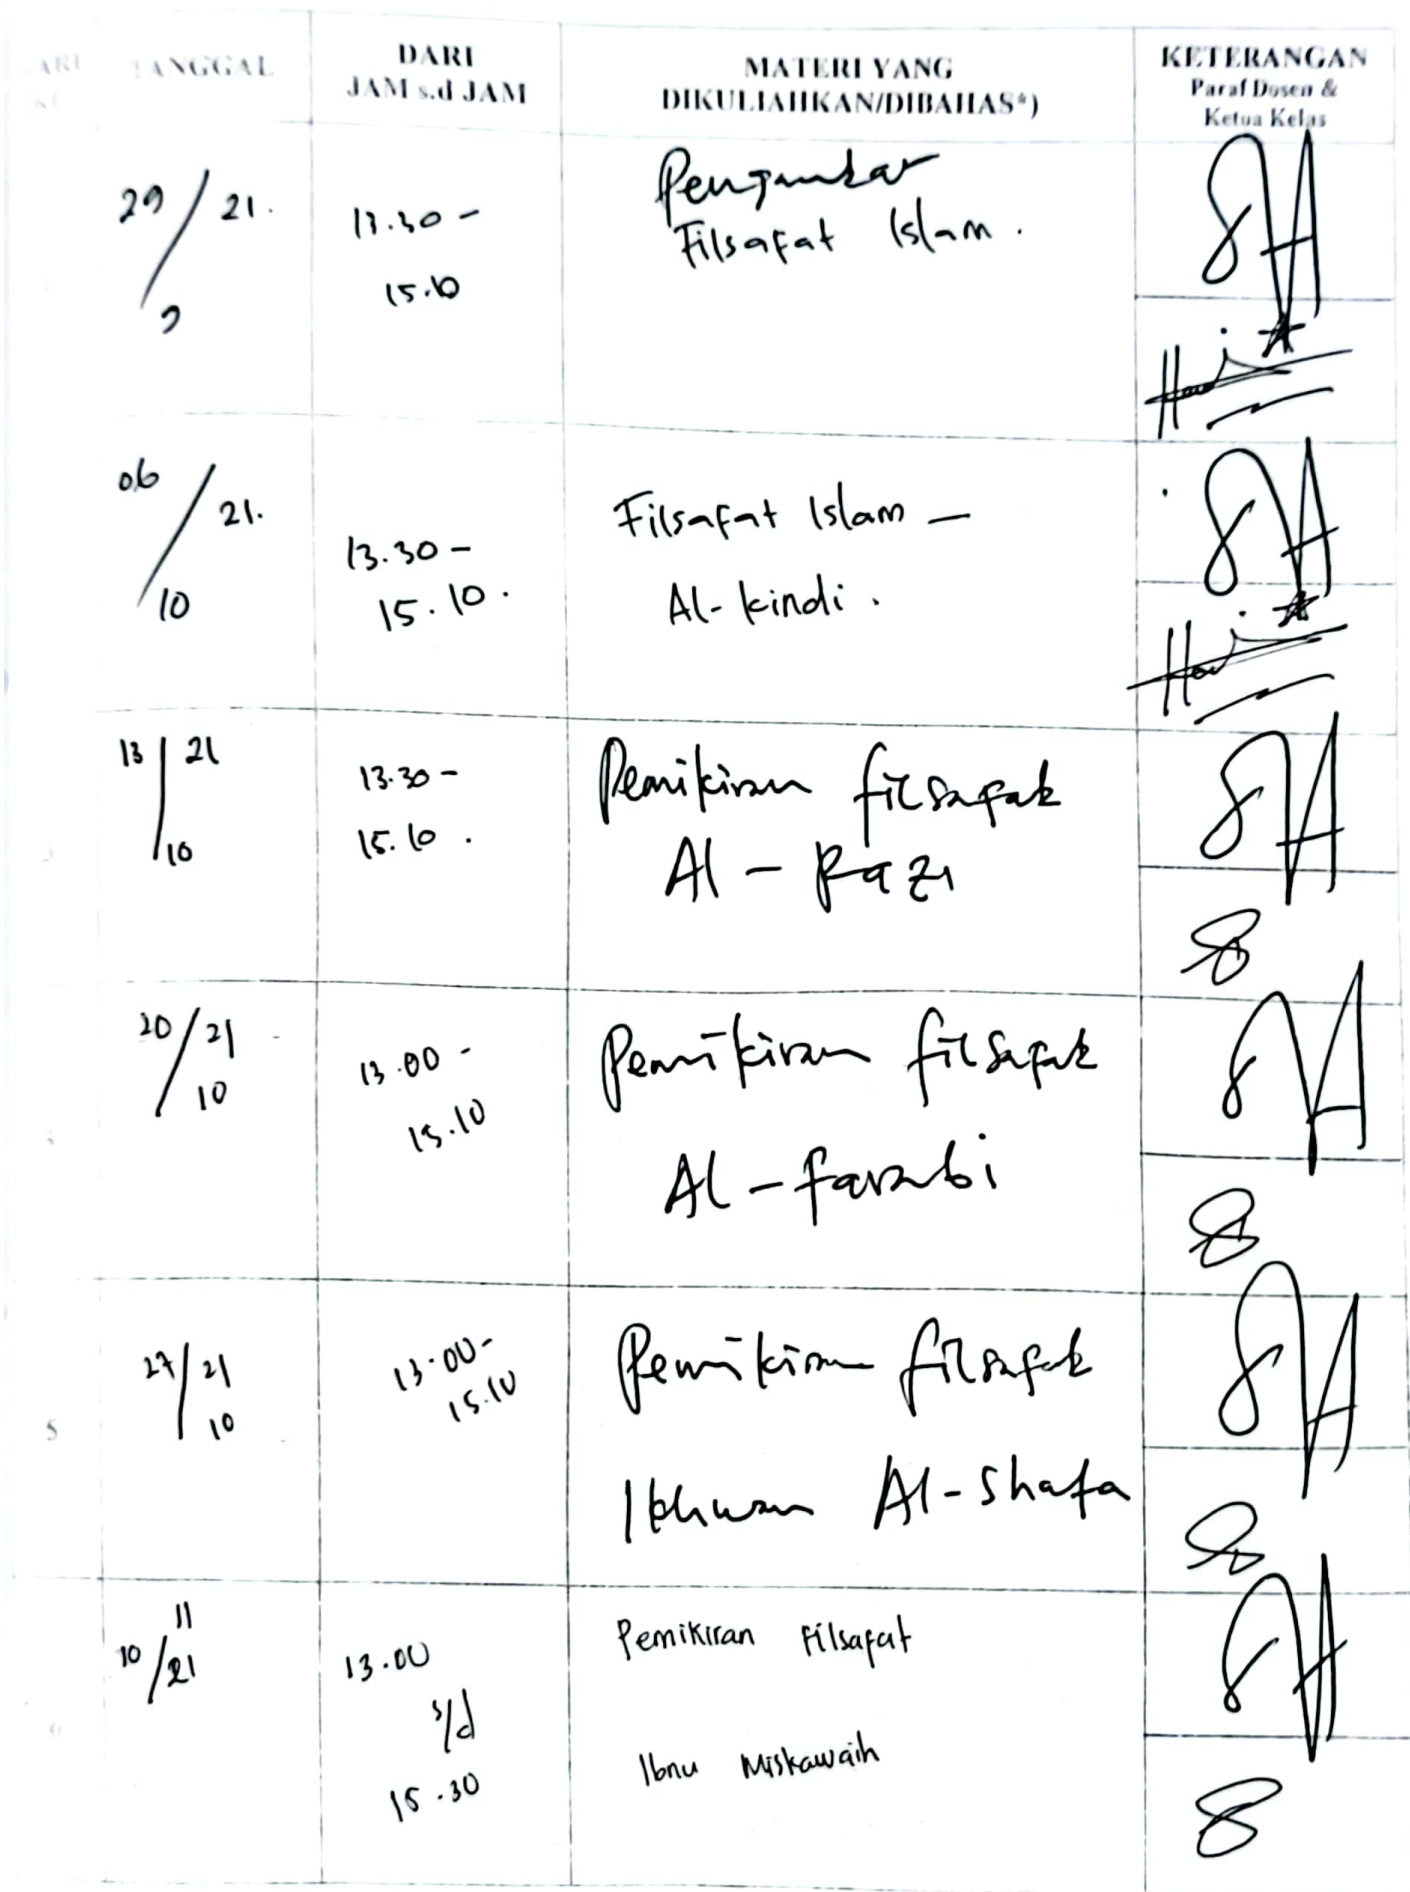 TANGGAL
DARI
JAM s.d JAM
MATERI YANG
DIKULIAHKAN/DIBAHAS*)
KETERANGAN
Paraf Dosen &
Ketua Kelas
29/21.
9
13.30 -
15.10
Pengantar
Filsafat Islam.
06/21.
10
13.30 -
15.10.
Filsafat Islam -
Al-kindi.
13/21
10
13.30 -
15.10.
Pemikiran filsafat
Al - Razi
20/21
10
13.00 -
15.10
Pemikiran filsafat
Al - farabi
5
27/21
10
13.00-
15.10
Pemikiran filsafat
Ikhwan Al-Shafa
6
11
10/21
13.00
s/d
15.30
Pemikiran Filsafat
Ibnu Miskawaih